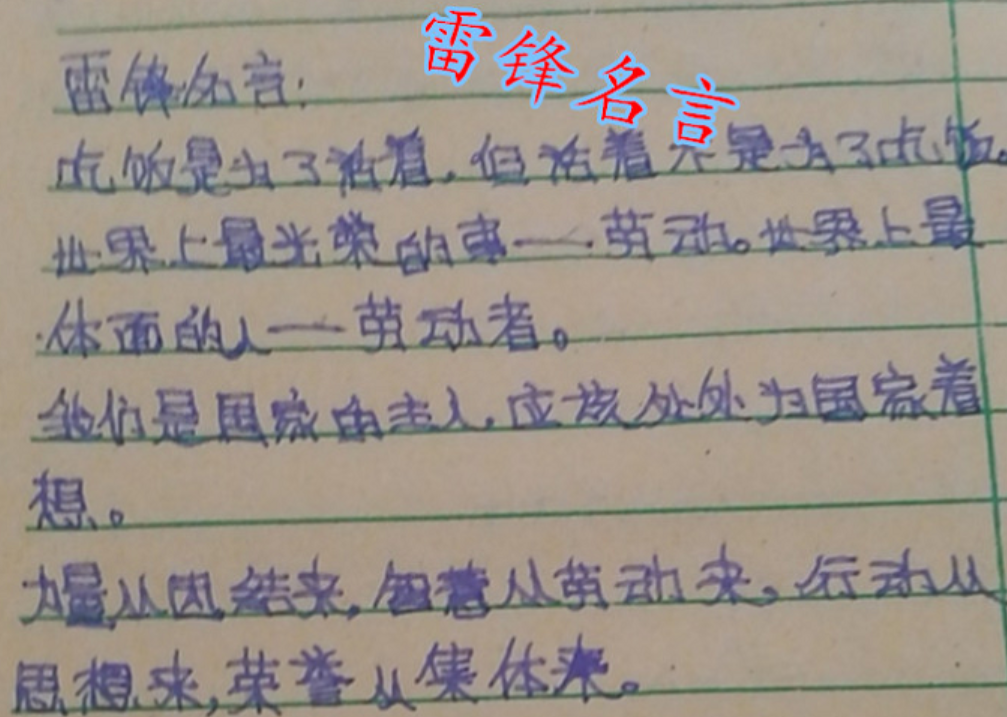 雷锋名言
雷锋名言:
吃饭是为了活着,但活着不是为了吃饭。
世界上最光荣的事——劳动。世界上最
体面的人——劳动者。
我们是国家的主人,应该处处为国家着
想。
力量从团结来,智慧从劳动来。行动从
思想来,荣誉从集体来。